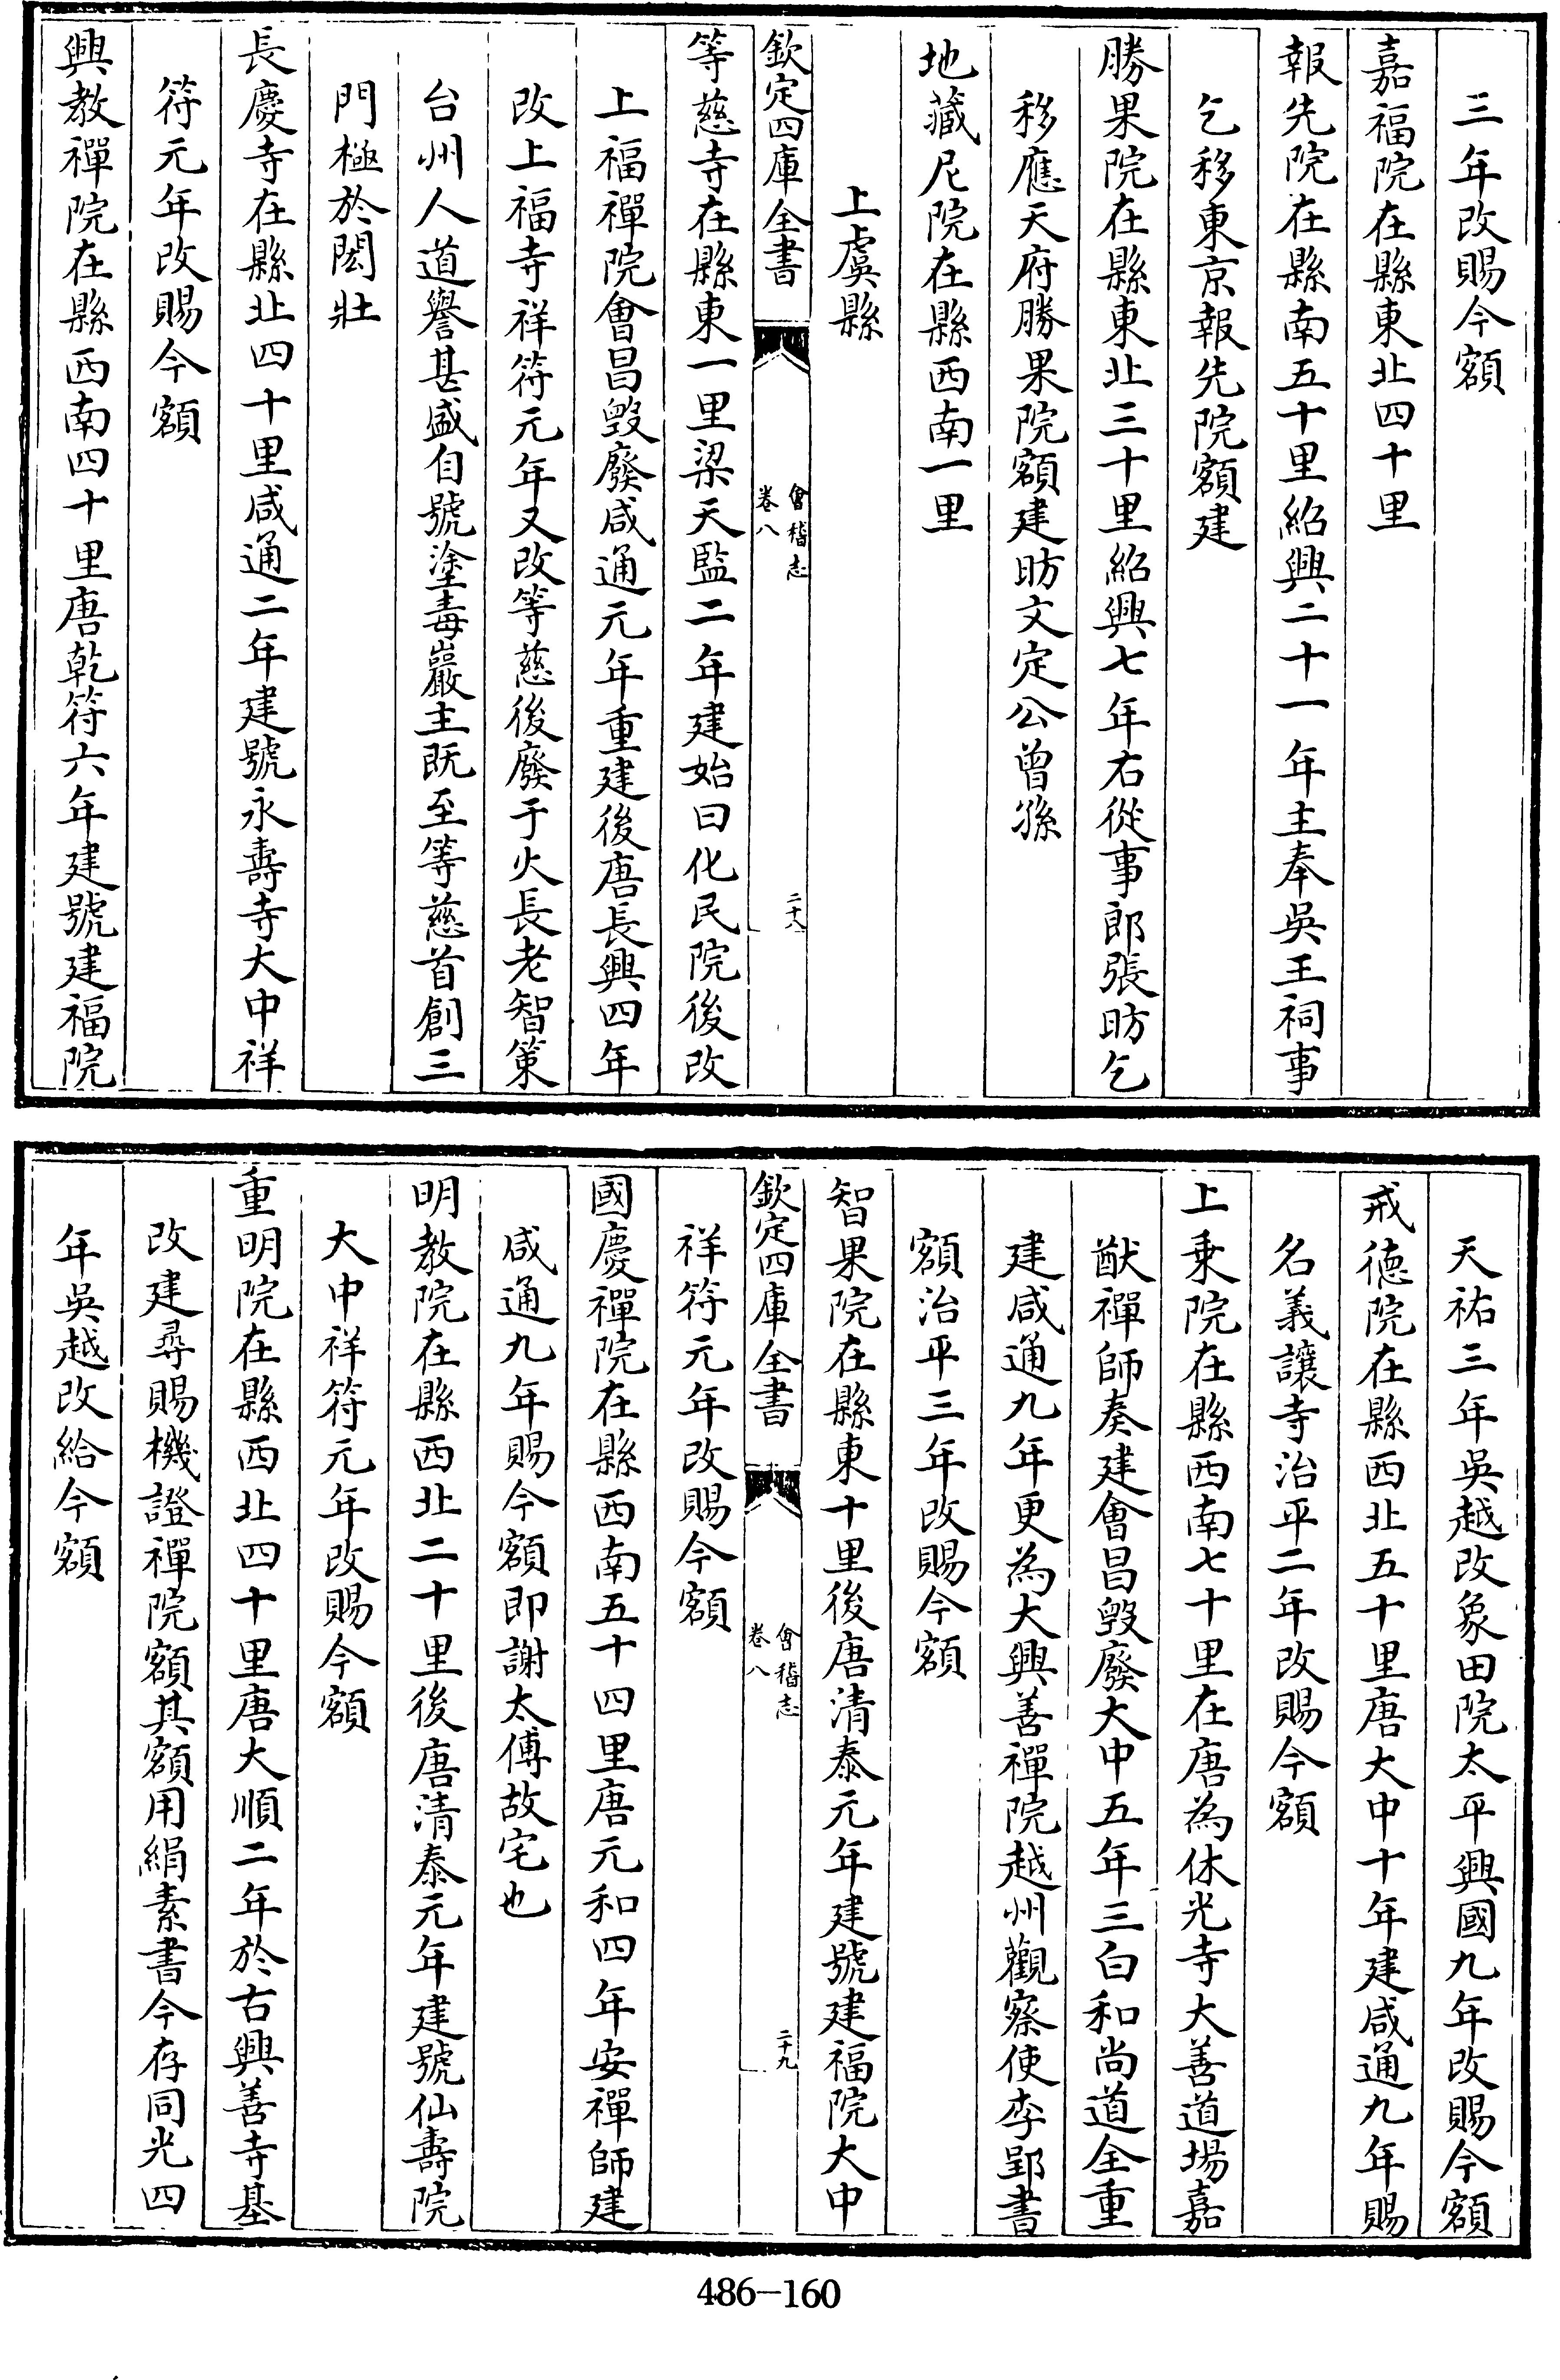 三年改賜今額
嘉福院在縣東北四十里
報先院在縣南五十里紹興二十一年主奉吳王祠事
乞移東京報先院額建
勝果院在縣東北三十里紹興七年右從事郎張昉乞
移應天府勝果院額建昉文定公曾孫
地藏尼院在縣西南一里
上虞縣
欽定四庫全書
會稽志
卷八
二十八
等慈寺在縣東一里梁天監二年建始曰化民院後改
上福禪院會昌毀廢咸通元年重建後唐長興四年
改上福寺祥符元年又改等慈後廢于火長老智策
台州人道譽甚盛自號塗毒巖主既至等慈首創三
門極於閎壯
長慶寺在縣北四十里咸通二年建號永壽寺大中祥
符元年改賜今額
興教禪院在縣西南四十里唐乾符六年建號建福院
天祐三年吳越改象田院太平興國九年改賜今額
戒德院在縣西北五十里唐大中十年建咸通九年賜
名義讓寺治平二年改賜今額
上乗院在縣西南七十里在唐為休光寺大善道場嘉
猷禪師奏建會昌毀廢大中五年三白和尚道全重
建咸通九年更為大興善禪院越州觀察使李郢書
額治平三年改賜今額
智果院在縣東十里後唐清泰元年建號建福院大中
欽定四庫全書
會稽志
卷八
二十九
祥符元年改賜今額
國慶禪院在縣西南五十四里唐元和四年安禪師建
咸通九年賜今額即謝太傅故宅也
明教院在縣西北二十里後唐清泰元年建號仙壽院
大中祥符元年改賜今額
重明院在縣西北四十里唐大順二年於古興善寺基
改建尋賜機證禪院額其額用絹素書今存同光四
年吳越改給今額
486-160